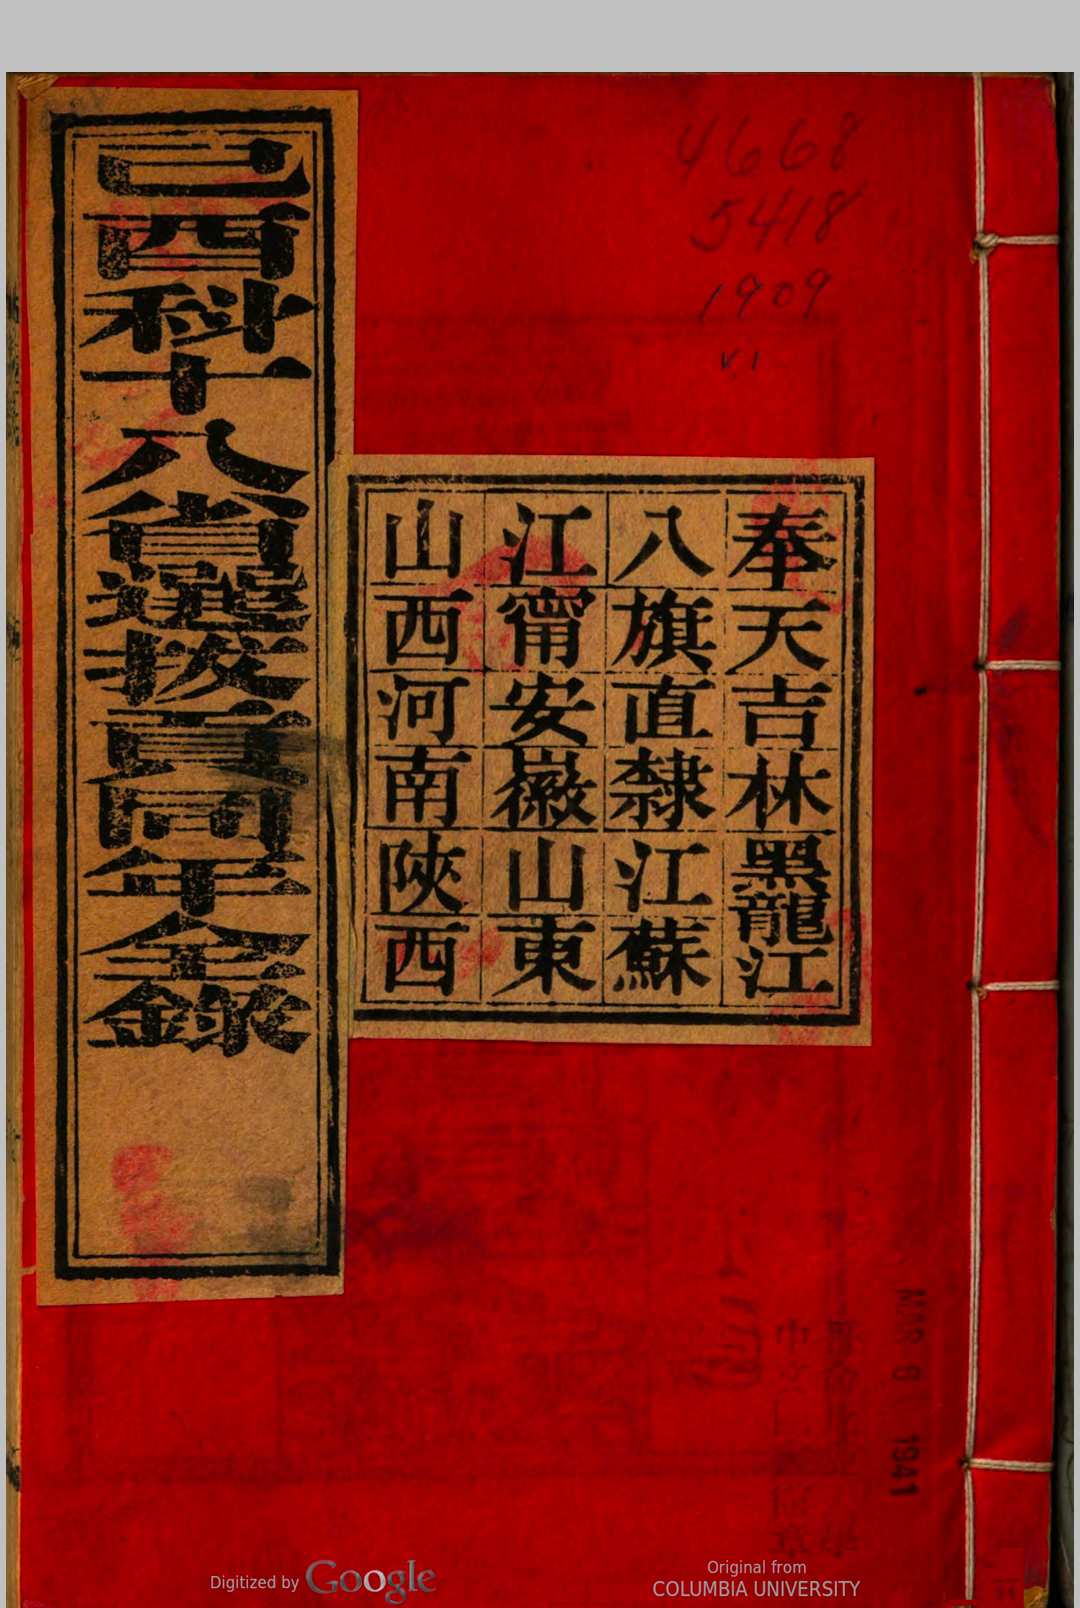 己酉科十八省選拔貢同年全錄
4668
5418
1909
v.1
奉天吉林黑龍江
八旗直隸江蘇
江甯安徽山東
山西河南陝西
MAR 6 1941
Digitized by Google
Original from
COLUMBIA UNIVERSITY